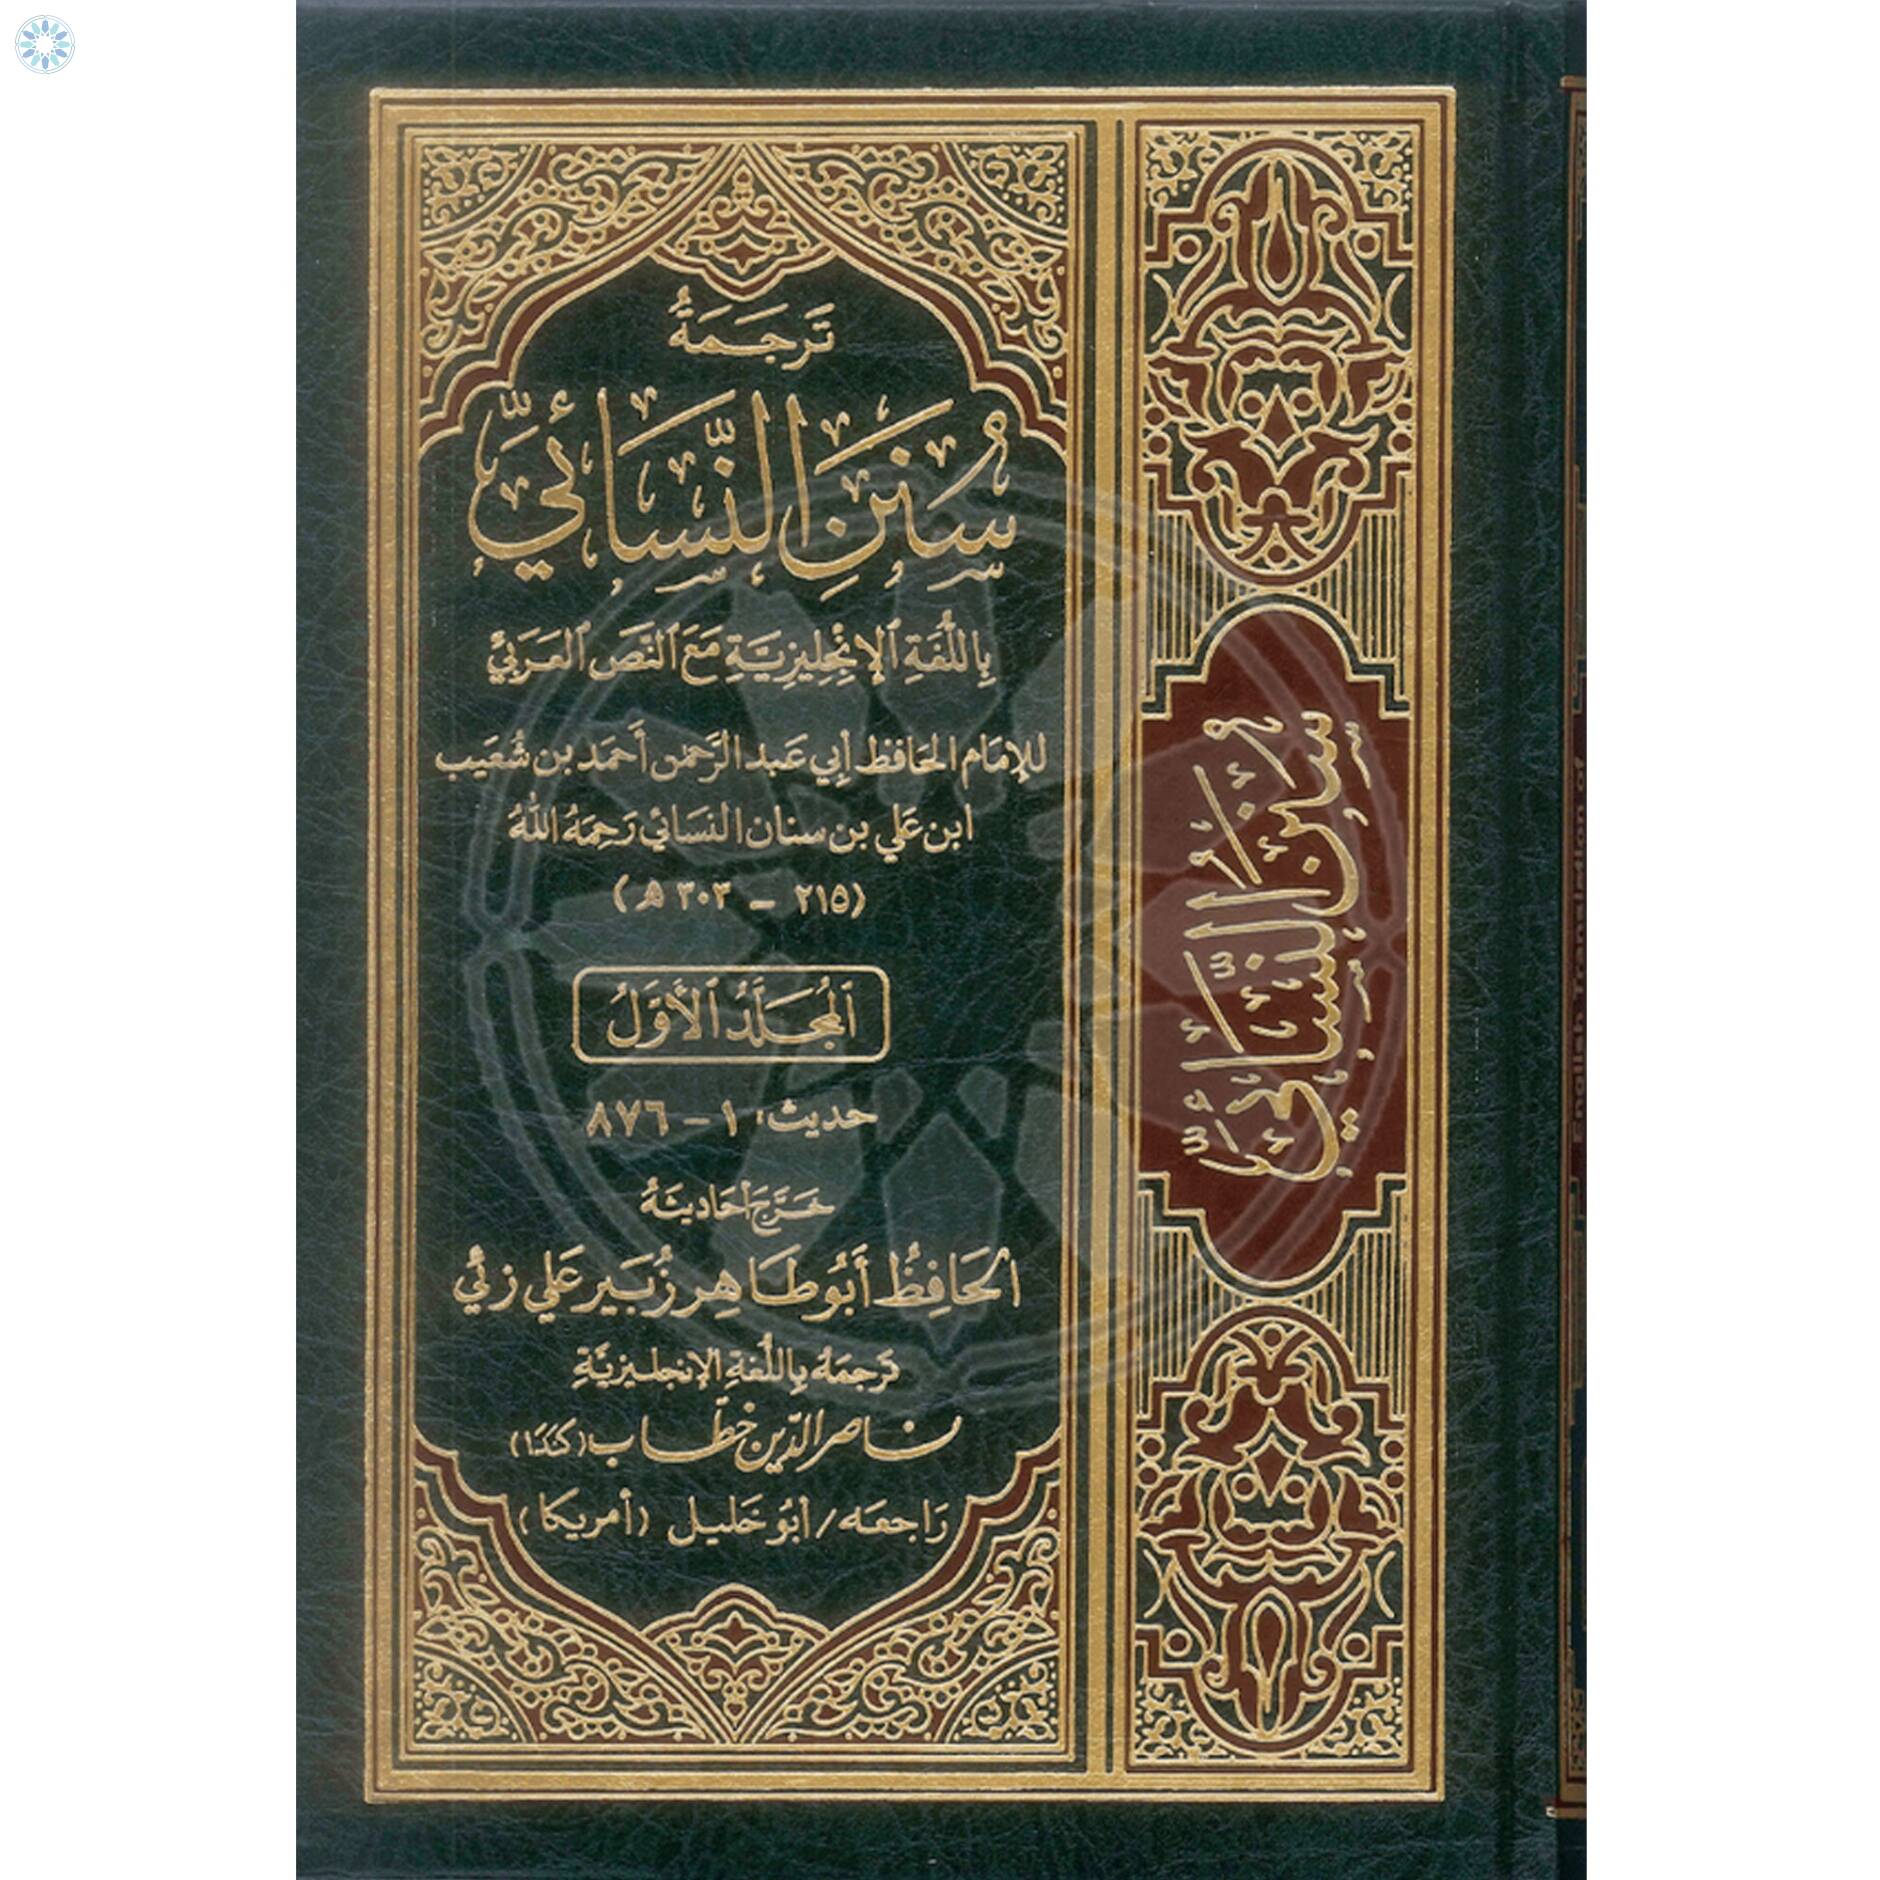 تَرجَمَةُ
سُنَنِ النَّسَائِيِّ
بِاللُّغَةِ الإِنْجِلِيزِيَّةِ مَعَ النَّصِ العَرَبيّ
للإمَام الحَافظ أبي عَبد الرَّحمٰن أحمَد بن شُعَيب
ابن عَلي بن سنان النسَائي رَحِمَهُ اللهُ
(٢١٥ – ٣٠٣ هـ)
المُجَلَّدُ الأَوَّلُ
حديث: ١ – ٨٧٦
خَرَّجَ أحَاديثَهُ
الحَافِظُ أَبُو طَاهِر زُبَير عَلي زئي
تَرجمَهُ بِاللُّغةِ الإنجليزيَّةِ
ناصر الدّين خطّاب (كَنَدَا)
رَاجعَه / أبُو خَليل (أمريكا)
سُنَنُ النَّسَائيِّ
English Translation of